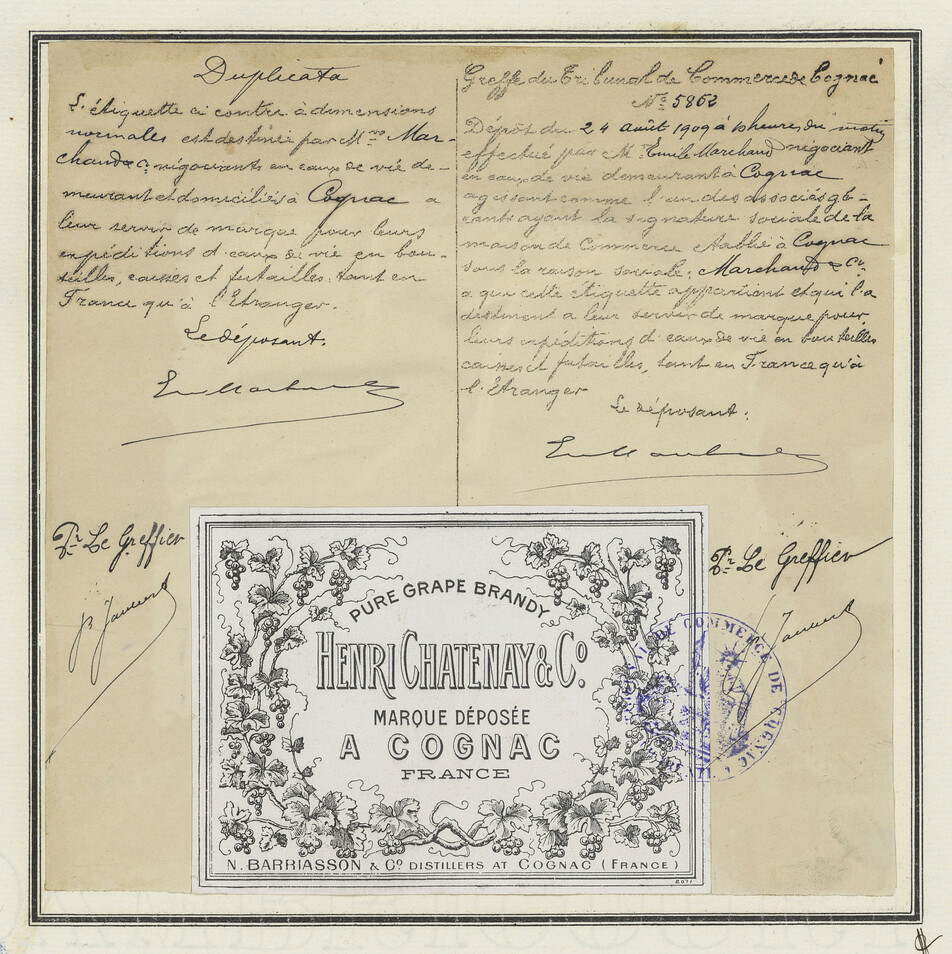 Duplicata
L'étiquette ci contre à dimensions
normales est destinée par M.rs Mar-
chand & C.ie négociants en eaux de vie de-
meurant et domiciliés à Cognac a
leur servir de marque pour leurs
expéditions d'eaux de vie en bou-
teilles, caisses et futailles, tant en
France qu'à l'Etranger.
Le déposant.
Greffe du Tribunal de Commerce de Cognac
N° 5862
Dépôt du 24 août 1909 à 10 heures du matin
effectué par M. Emile Marchand négociant
en eaux de vie demeurant à Cognac
agissant comme l'un des associés gé-
rants ayant la signature sociale de la
maison de Commerce établie à Cognac
sous la raison sociale: Marchand & Cie
a qui cette étiquette appartient et qui l'a
destinent a leur servir de marque pour
leurs expéditions d'eaux de vie en bouteilles
caisses et futailles, tant en France qu'à
l'Etranger
Le déposant.
Pr. Le Greffier
Pr. Le Greffier
PURE GRAPE BRANDY
HENRI CHATENAY & Co.
MARQUE DÉPOSÉE
A COGNAC
FRANCE
N. BARRIASSON & Co. DISTILLERS AT COGNAC (FRANCE)
DE COMMERCE DE COGNAC